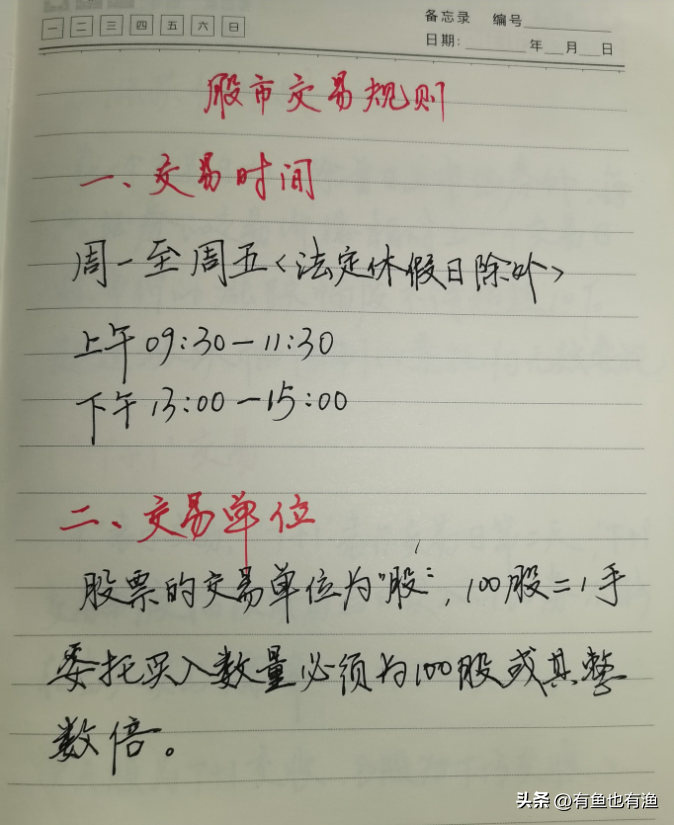 一 二 三 四 五 六 日
备忘录 编号
日期: 年 月 日
股市交易规则
一、交易时间
周一至周五<法定休假日除外>
上午 09:30-11:30
下午 13:00-15:00
二、交易单位
股票的交易单位为"股", 100股=1手
委托买入数量必须为100股或其整
数倍。
头条 @有鱼也有渔